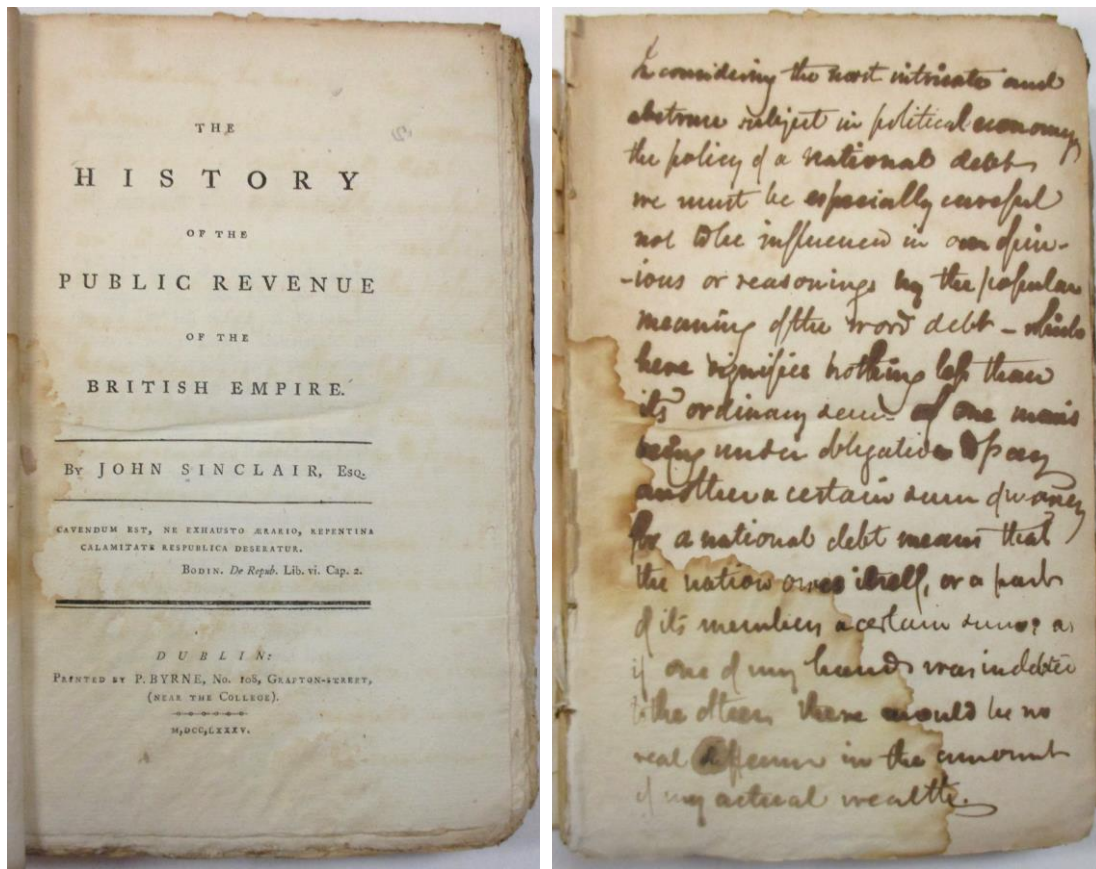 THE
HISTORY
OF THE
PUBLIC REVENUE
OF THE
BRITISH EMPIRE.
By JOHN SINCLAIR, Esq.
CAVENDUM EST, NE EXHAUSTO ÆRARIO, REPENTINA
CALAMITATE RESPUBLICA DESERATUR.
BODIN. De Repub. Lib. vi. Cap. 2.
DUBLIN:
PRINTED BY P. BYRNE, No. 108, GRAFTON-STREET,
(NEAR THE COLLEGE).
M,DCC,LXXXV.
In considering the most intricate and
abstruse subject in political economy
the policy of a national debt
we must be especially careful
not to be influenced in our opin-
-ions or reasonings by the popular
meaning of the word debt – which
here signifies nothing less than
its ordinary sense of one man's
being under obligation to pay
another a certain sum of money
for a national debt means that
the nation owes itself, or a part
of its members a certain sum as
if one of my hands was indebted
to the other, there would be no
real difference in the amount
of my actual wealth.